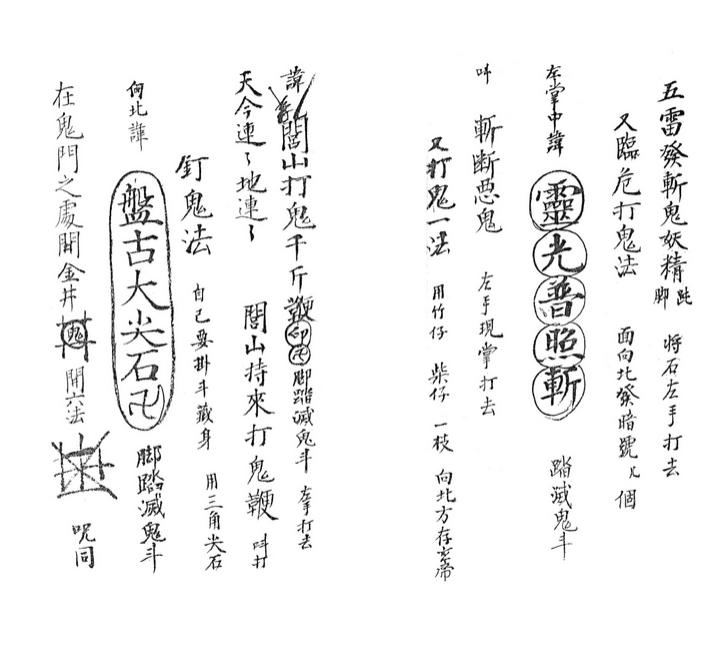 五雷發斬鬼妖精 腳踏 將石左手打去
又臨危打鬼法 面向北發暗號 個
左掌中諱 靈光普照斬 踏滅鬼斗
叫 斬斷惡鬼 左手現掌打去
又打鬼一法 用竹仔 柴仔 一枝 向北方存玄帝
諱 閭山打鬼千斤鞭 印卍 脚踏滅鬼斗 左手打去
天今連〻地連〻 閭山持來打鬼鞭 叫打
釘鬼法 自己要掛斗藏身 用三角尖石
向北諱 盤古大尖石卍 脚踏滅鬼斗
在鬼門之處開金井 鬼 開六法 咒同